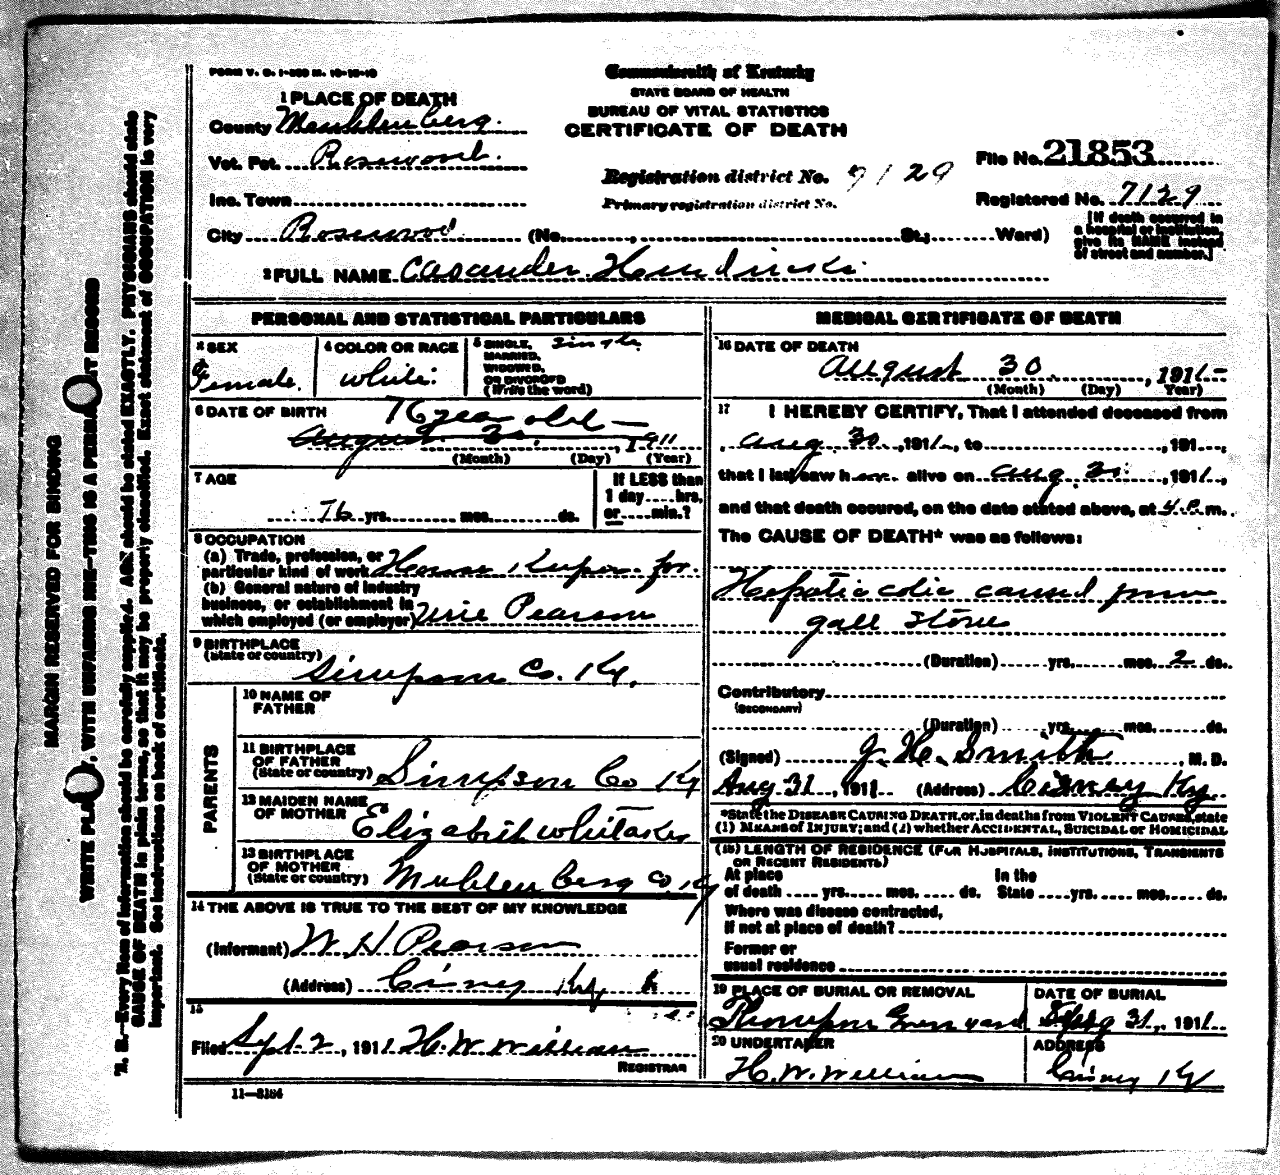 FORM V. S. 1-200 M. 10-18-10
Commonwealth of Kentucky
STATE BOARD OF HEALTH
BUREAU OF VITAL STATISTICS
CERTIFICATE OF DEATH
1 PLACE OF DEATH
County Meuhlenberg.
Vot. Pct. Rosewood.
Inc. Town
City Rosewood (No. , St.; Ward)
Registration district No. 7129
Primary registration district No.
File No. 21853
Registered No. 7129
[If death occurred in
a hospital or institution,
give its NAME instead
of street and number.]
2 FULL NAME Casander Hendricks
PERSONAL AND STATISTICAL PARTICULARS
3 SEX
Female.
4 COLOR OR RACE
white.
5 SINGLE, Single
MARRIED,
WIDOWED,
OR DIVORCED
(Write the word)
6 DATE OF BIRTH 76 year old
August 30. , 1911
(Month) (Day) (Year)
7 AGE
76 yrs. mos. ds.
If LESS than
1 day hrs.
or min.?
8 OCCUPATION
(a) Trade, profession, or
particular kind of work House Keeper for
(b) General nature of industry
business, or establishment in
which employed (or employer) Pearson
9 BIRTHPLACE
(State or country)
Simpson Co. Ky.
PARENTS
10 NAME OF
FATHER
11 BIRTHPLACE
OF FATHER
(State or country) Simpson Co Ky
12 MAIDEN NAME
OF MOTHER
Elizabeth Whitaker
13 BIRTHPLACE
OF MOTHER
(State or country) Muhlenberg Co Ky
14 THE ABOVE IS TRUE TO THE BEST OF MY KNOWLEDGE
(Informant) W H Pearson
(Address) Cisney Ky
15
Filed Sept. 2, 1911 H. W. William
REGISTRAR
11—3184
MEDICAL CERTIFICATE OF DEATH
16 DATE OF DEATH
August 30. , 1911
(Month) (Day) (Year)
17 I HEREBY CERTIFY, That I attended deceased from
, Aug 30, 1911, to , 191 ,
that I last saw her alive on Aug 30. , 1911,
and that death occured, on the date stated above, at 4 P. m.
The CAUSE OF DEATH* was as follows:
Hepatic colic caused from
gall Stones
(Duration) yrs. mos. 2 ds.
Contributory
(SECONDARY)
(Duration) yrs. mos. ds.
(Signed) J. H. Smith , M. D.
Aug 31 , 1911 (Address) Cisney Ky.
*State the DISEASE CAUSING DEATH, or, in deaths from VIOLENT CAUSES, state
(1) MEANS of INJURY; and (2) whether ACCIDENTAL, SUICIDAL or HOMICIDAL
(18) LENGTH OF RESIDENCE (FOR HOSPITALS, INSTITUTIONS, TRANSIENTS
OR RECENT RESIDENTS)
At place In the
of death yrs. mos. ds. State yrs. mos. ds.
Where was disease contracted,
If not at place of death?
Former or
usual residence
19 PLACE OF BURIAL OR REMOVAL
Thompson Graveyard
DATE OF BURIAL
Aug 31, 1911
20 UNDERTAKER
H. W. William
ADDRESS
Cisney Ky
MARGIN RESERVED FOR BINDING
WRITE PLAINLY, WITH UNFADING INK—THIS IS A PERMANENT RECORD
N. B.—Every item of information should be carefully supplied. AGE should be stated EXACTLY. PHYSICIANS should state
CAUSE OF DEATH in plain terms, so that it may be properly classified. Exact statement of OCCUPATION is very
important. See instructions on back of certificate.